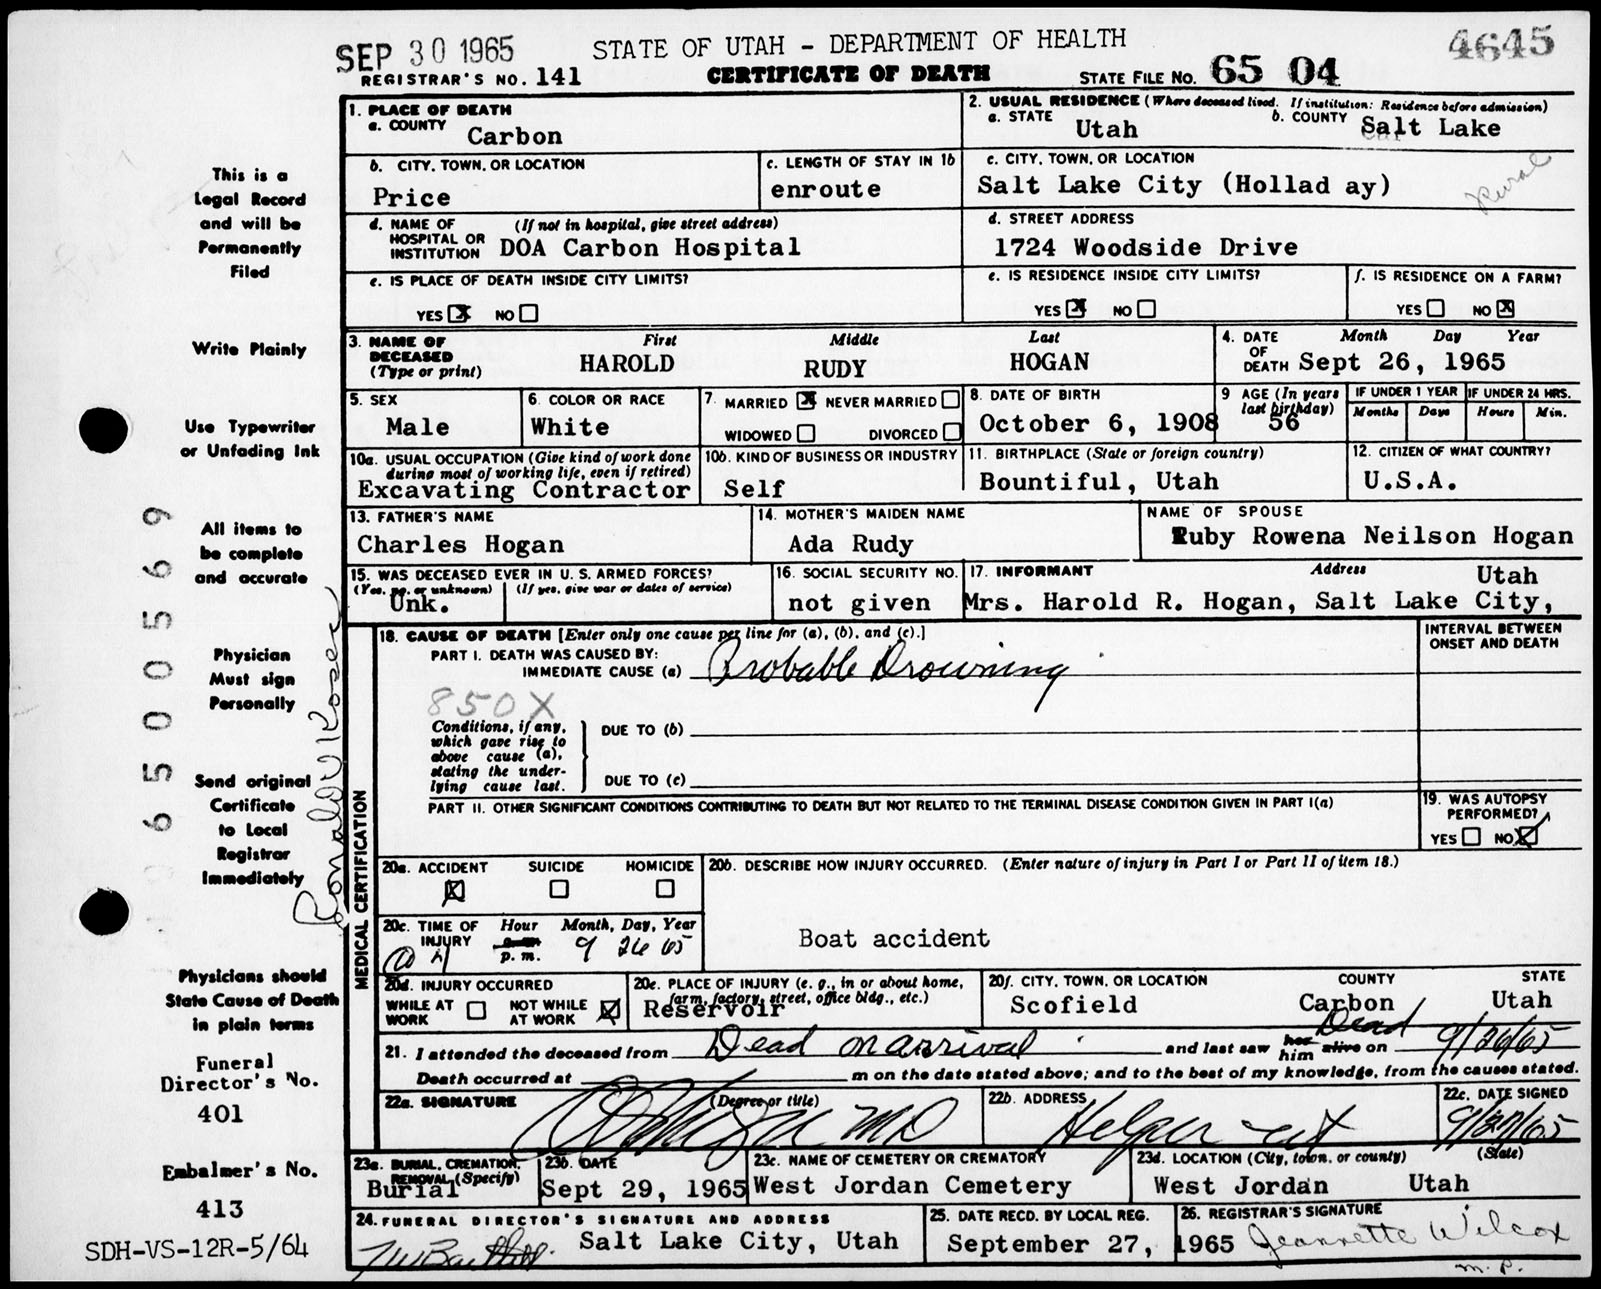 SEP 30 1965
STATE OF UTAH - DEPARTMENT OF HEALTH
4645
REGISTRAR'S NO. 141
CERTIFICATE OF DEATH
STATE FILE NO. 65 04
1. PLACE OF DEATH
a. COUNTY Carbon
2. USUAL RESIDENCE (Where deceased lived. If institution: Residence before admission)
a. STATE Utah
b. COUNTY Salt Lake
b. CITY, TOWN, OR LOCATION
Price
c. LENGTH OF STAY IN 1b
enroute
c. CITY, TOWN, OR LOCATION
Salt Lake City (Hollad ay)
Rural
d. NAME OF HOSPITAL OR INSTITUTION (If not in hospital, give street address)
DOA Carbon Hospital
d. STREET ADDRESS
1724 Woodside Drive
e. IS PLACE OF DEATH INSIDE CITY LIMITS?
YES X NO
e. IS RESIDENCE INSIDE CITY LIMITS?
YES X NO
f. IS RESIDENCE ON A FARM?
YES NO X
3. NAME OF DECEASED (Type or print)
First Middle Last
HAROLD RUDY HOGAN
4. DATE OF DEATH Month Day Year
Sept 26, 1965
5. SEX
Male
6. COLOR OR RACE
White
7. MARRIED X NEVER MARRIED
WIDOWED DIVORCED
8. DATE OF BIRTH
October 6, 1908
9 AGE (In years last birthday)
56
IF UNDER 1 YEAR
Months Days
IF UNDER 24 HRS.
Hours Min.
10a. USUAL OCCUPATION (Give kind of work done during most of working life, even if retired)
Excavating Contractor
10b. KIND OF BUSINESS OR INDUSTRY
Self
11. BIRTHPLACE (State or foreign country)
Bountiful, Utah
12. CITIZEN OF WHAT COUNTRY?
U.S.A.
13. FATHER'S NAME
Charles Hogan
14. MOTHER'S MAIDEN NAME
Ada Rudy
NAME OF SPOUSE
Ruby Rowena Neilson Hogan
15. WAS DECEASED EVER IN U. S. ARMED FORCES?
(Yes, no, or unknown) (If yes, give war or dates of service)
Unk.
16. SOCIAL SECURITY NO.
not given
17. INFORMANT Address
Mrs. Harold R. Hogan, Salt Lake City, Utah
MEDICAL CERTIFICATION
18. CAUSE OF DEATH [Enter only one cause per line for (a), (b), and (c).]
INTERVAL BETWEEN ONSET AND DEATH
PART I. DEATH WAS CAUSED BY:
IMMEDIATE CAUSE (a) Probable Drowning
850X
Conditions, if any, which gave rise to above cause (a), stating the underlying cause last.
DUE TO (b)
DUE TO (c)
PART II. OTHER SIGNIFICANT CONDITIONS CONTRIBUTING TO DEATH BUT NOT RELATED TO THE TERMINAL DISEASE CONDITION GIVEN IN PART I(a)
19. WAS AUTOPSY PERFORMED?
YES NO X
20a. ACCIDENT SUICIDE HOMICIDE
X
20b. DESCRIBE HOW INJURY OCCURRED. (Enter nature of injury in Part I or Part II of item 18.)
Boat accident
20c. TIME OF INJURY Hour Month, Day, Year
a.m. p.m. 9 26 65
20d. INJURY OCCURRED
WHILE AT WORK NOT WHILE AT WORK X
20e. PLACE OF INJURY (e. g., in or about home, farm, factory, street, office bldg., etc.)
Reservoir
20f. CITY, TOWN, OR LOCATION COUNTY STATE
Scofield Carbon Utah
21. I attended the deceased from Dead on arrival and last saw her him alive on Dead 9/26/65
Death occurred at m on the date stated above; and to the best of my knowledge, from the causes stated.
22a. SIGNATURE (Degree or title)
MD
22b. ADDRESS
Helper Ut
22c. DATE SIGNED
23a. BURIAL, CREMATION, REMOVAL (Specify)
Burial
23b. DATE
Sept 29, 1965
23c. NAME OF CEMETERY OR CREMATORY
West Jordan Cemetery
23d. LOCATION (City, town, or county) (State)
West Jordan Utah
24. FUNERAL DIRECTOR'S SIGNATURE AND ADDRESS
Salt Lake City, Utah
25. DATE RECD. BY LOCAL REG.
September 27, 1965
26. REGISTRAR'S SIGNATURE
Jeannette Wilcox
m. p.
This is a
Legal Record
and will be
Permanently
Filed
Write Plainly
Use Typewriter
or Unfading Ink
All items to
be complete
and accurate
Physician
Must sign
Personally
Send original
Certificate
to Local
Registrar
Immediately
Physicians should
State Cause of Death
in plain terms
Funeral
Director's No.
401
Embalmer's No.
413
SDH-VS-12R-5/64
65 00569